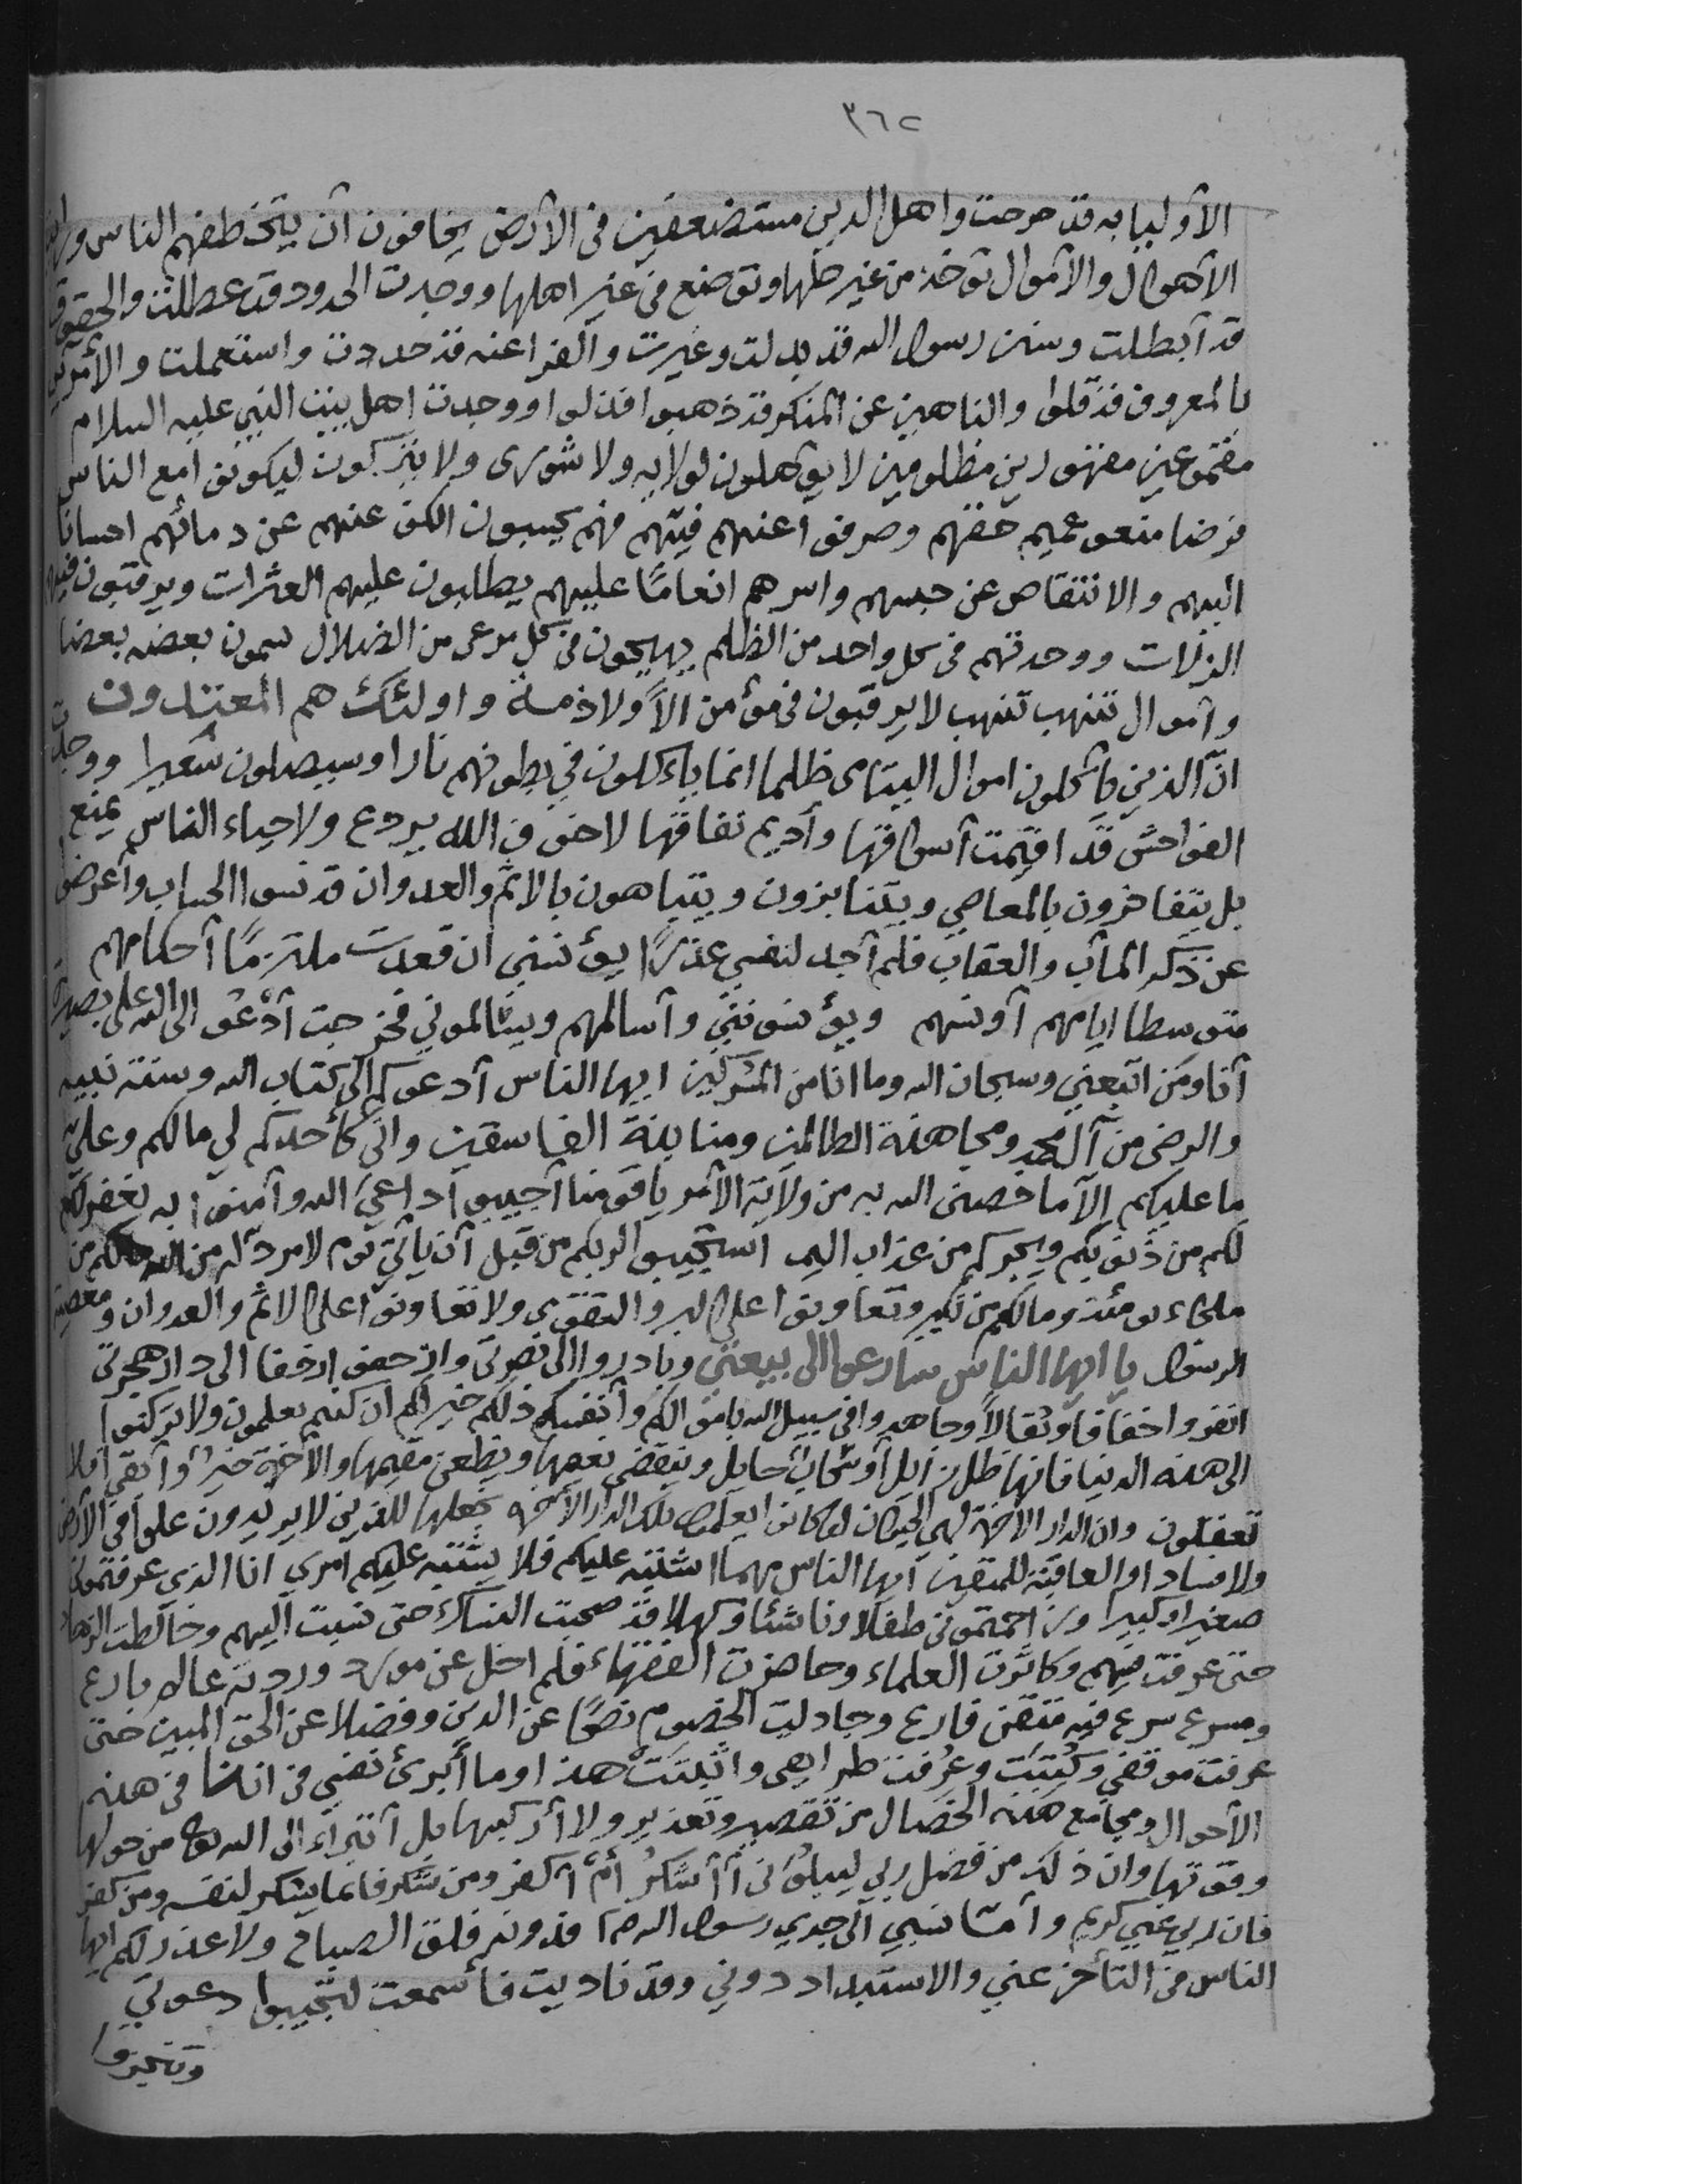 ٣٦٢
الأوليا به قد حرجت واهل الدين مستضعفين في الأرض يخافون أن يتخطفهم الناس
الأهوال والأموال تؤخذ من غير حلها وتوضع في غير اهلها ووجدت الحدود قد عطلت والحقوق
قد أبطلت وسنن رسول الله قد بدلت وغيرت والفراعنه قد جددت واستعملت والأمرين
بالمعروف قد قلوا والناهين عن المنكر قد ذهبوا فذلوا ووجدت اهل بيت النبي عليه السلام
مقموعين مقهورين مظلومين لا يؤهلون لولايه ولا شورى ولا يتركون ليكونوا مع الناس
فرضا منعوهم حقهم وصرفوا عنهم فيئهم فهم يحسبون الكف عنهم عن دمائهم احسانا
اليهم والانتقاص عن حبسهم واسرهم انعامًا عليهم يطلبون عليهم العثرات ويرقبون فيهم
الزلات ووجدتهم في كل واحد من الظلم يهيمون في كل مرعى من الضلال بعضه بعضا
وأموال تنهب تنهب لا يرقبون في مؤمن الاًّ ولا ذمة واولئك هم المعتدون
انّ الذين يأكلون اموال اليتامى ظلما انما يأكلون في بطونهم نارا وسيصلون سعيرا ووجدت
الفواحش قد اقيمت أسواقها وأديم نفاقها لا خوف الله يردع ولا حياء الناس يمنع
بل يتفاخرون بالمعاصي ويتنابزون ويتباهون بالاثم والعدوان قد نسوا الحساب وأعرضوا
عن ذكر المآب والعقاب فلم أجد لنفسي عذرًا ان قعدت ملتزمًا أحكامهم
متوسطا ايامهم أونسهم ويؤنسونني وأسالمهم ويسالموني فخرجت أدْعُو الى الله على بصيرة
أنا ومن اتبعني وسبحان الله وما انا من المشركين ايها الناس أدعوكم الى كتاب الله وسنة نبيه
والرضى من آل محمد ومجاهدة الظالمين ومنابذة الفاسقين واني كأحدكم لي ما لكم وعليّ
ما عليكم إلاّ ما خصني الله به من ولاية الأمر يا قومنا أجيبوا داعي الله وآمنوا به يغفر لكم
لكم من ذنوبكم ويجركم من عذاب اليم استجيبوا لربكم من قبل أن يأتي يوم لا مردّ له من الله ما لكم من
ملجاء يومئذ وما لكم من نكير وتعاونوا على البر والتقوى ولا تعاونوا على الاثم والعدوان ومعصية
الرسول يا ايها الناس سارعوا الى بيعتي وبادروا الى نصرتي وازحفوا زحفا الى دار هجرتي
انفروا خفافا وثقالاً وجاهدوا في سبيل الله باموالكم وأنفسكم ذلكم خير لكم ان كنتم تعلمون ولا تركنوا
الى هذه الدنيا فانها ظل زايل أو سحاب حايل وينقضي نعيمها ويظعن مقيمها والآخرة خير وأبقى افلا
تعقلون وان الدار الاخرة لهي الحيوان لو كانوا يعلمون تلك الدار الآخره نجعلها للذين لا يريدون علوا في الأرض
ولا فسادا والعاقبة للمتقين أيها الناس مهما اشتبه عليكم فلا يشتبه عليكم امري انا الذي عرفتموني
صغيرا وكبيرا وزاحمتموني طفلا وناشئا وكهلا قد صحبت النساك حتى نسبت اليهم وخالطت الزهاد
حتى عرفت فيهم وكاثرت العلماء وحاضرت الفقهاء فلم اخل عن مورد ورده عالم بارع
ومسرع سرع فيه متقن فارع وجادلت الخصوم نصحًا عن الدين وفضلا عن الحق المبين حتى
عرفت موقفي وكُتِبَت وعُرِفت طرايقي واثبتت هذا وما أبرئ نفسي في اثناء في هذه
الأحوال ومجامع هذه الخصال من تقصير وتعذير ولا أزكيها بل أتبراء الى الله من حولها
وقوتها وان ذلك من فضل ربي ليبلوَني أأشكرُ أمْ أكفر ومن شكر فانما يشكر لنفسه ومن كفر
فان ربي غني كريم وأمّا نسبي الى جدي رسول الله فدونه فلق الصباح ولا عذر لكم ايها
الناس في التأخر عني والاستبداد دوني وقد ناديت فأسمعت لتجيبوا دعوتي